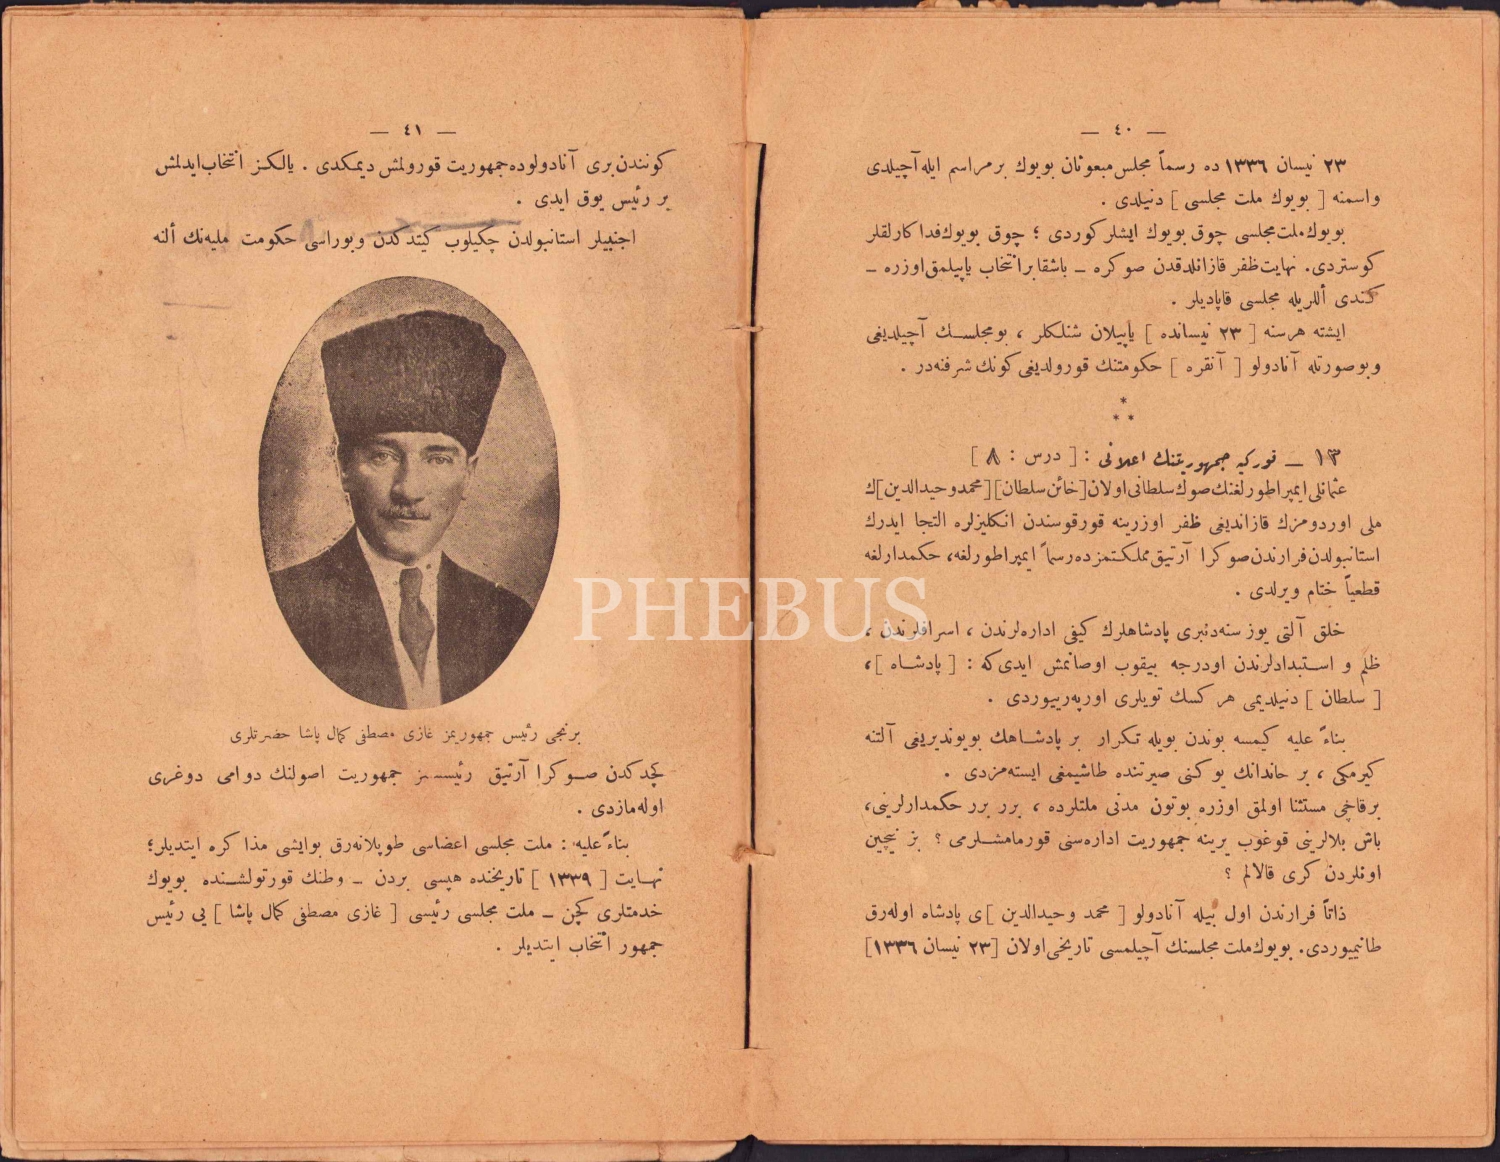 — ٤٠ —
٢٣ نیسان ١٣٣٦ ده رسماً مجلس مبعوثان بویوك برمراسم ایله آچیلدی
واسمنه [ بویوك ملت مجلسی ] دنیلدی .
بویوك ملت مجلسی چوق بویوك ایشلر كوردی ؛ چوق بویوك فداكارلقلر
كوستردی. نهایت ظفر قازانلدقدن صوكره ـ باشقا بر انتخاب یاپیلمق اوزره ـ
كندی أللریله مجلسی قاپادیلر .
ایشته هرسنه [ ٢٣ نیسانده ] یاپیلان شنلكلر ، بومجلسك آچیلدیغی
وبوصورتله آنادولو [ آنقره ] حكومتنك قورولدیغی كونك شرفنه‌در .
*
* *
١٣ ــ توركیه جمهوریتنك اعلانی : [ درس : ٨ ]
عثمانلی ایمپراطورلغنك صوك سلطانی اولان [خائن سلطان] [محمد وحیدالدین]ك
ملی اوردومزك قازاندیغی ظفر اوزرینه قورقوسندن انكلیزلره التجا ایدرك
استانبولدن فرارندن صوكرا آرتیق مملكتمزده رسماً ایمپراطورلغه، حكمدارلغه
قطعیاً ختام ویرلدی .
خلق آلتی یوز سنه‌دنبری پادشاهلرك كیفی اداره‌لرندن ، اسرافلرندن ،
ظلم و استبدادلرندن اودرجه بیقوب اوصانمش ایدی كه : [ پادشاه ] ،
[ سلطان ] دنیلدیمی هركسك تویلری اورپه‌رییوردی .
بناءً علیه كیمسه بوندن بویله تكرار بر پادشاهك بویوندیریغی آلتنه
كیرمكی ، بر خاندانك یوكنی صیرتنده طاشیمغی ایسته‌مزدی .
برقاچی مستثنا اولمق اوزره بوتون مدنی ملتلرده ، برر برر حكمدارلرینی،
باش بلالرینی قوغوب یرینه جمهوریت اداره‌سنی قورمامشلرمی ؟ بز نیچین
اونلردن كری قالالم ؟
ذاتاً فرارندن اول بیله آنادولو [ محمد وحیدالدین ]ی پادشاه اوله‌رق
طانیمیوردی. بویوك ملت مجلسنك آچیلمسی تاریخی اولان [٢٣ نیسان ١٣٣٦]
— ٤١ —
كونندن بری آنادولوده جمهوریت قورولمش دیمكدی . یالكز انتخاب ایدلمش
بر رئیس یوق ایدی .
اجنبیلر استانبولدن چكیلوب كیتدكدن وبوراسی حكومت ملیه‌نك ألنه
برنجی رئیس جمهوریمز غازی مصطفی كمال پاشا حضرتلری
كچدكدن صوكرا آرتیق رئیسسز جمهوریت اصولنك دوامی دوغری
اوله‌مازدی .
بناءً علیه : ملت مجلسی اعضاسی طوپلانه‌رق بوایشی مذاكره ایتدیلر؛
نهایت [ ١٣٣٩ ] تاریخنده هپسی بردن ـ وطنك قورتولشنده بویوك
خدمتلری كچن ـ ملت مجلسی رئیسی [ غازی مصطفی كمال پاشا ] یی رئیس
جمهور انتخاب ایتدیلر .
PHEBUS